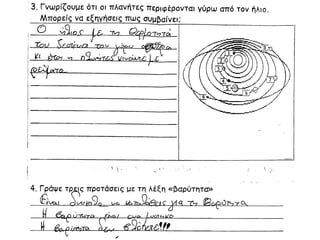 3. Γνωρίζουμε ότι οι πλανήτες περιφέρονται γύρω από τον ήλιο.
Μπορείς να εξηγήσεις πως συμβαίνει;
Ο ήλιος με τη θερμότητά
του ζεσταίνει τον γύρω
κι έτσι η πλανήτες κινούνται με
ρεύματα
4. Γράψε τρεις προτάσεις με τη λέξη «βαρύτητα»
Είναι δύσκολο να καταλάβεις για τη βαρύτητα
Η βαρύτητα είναι ένα μυστικό
Η βαρύτητα δεν βλέπετε!!!